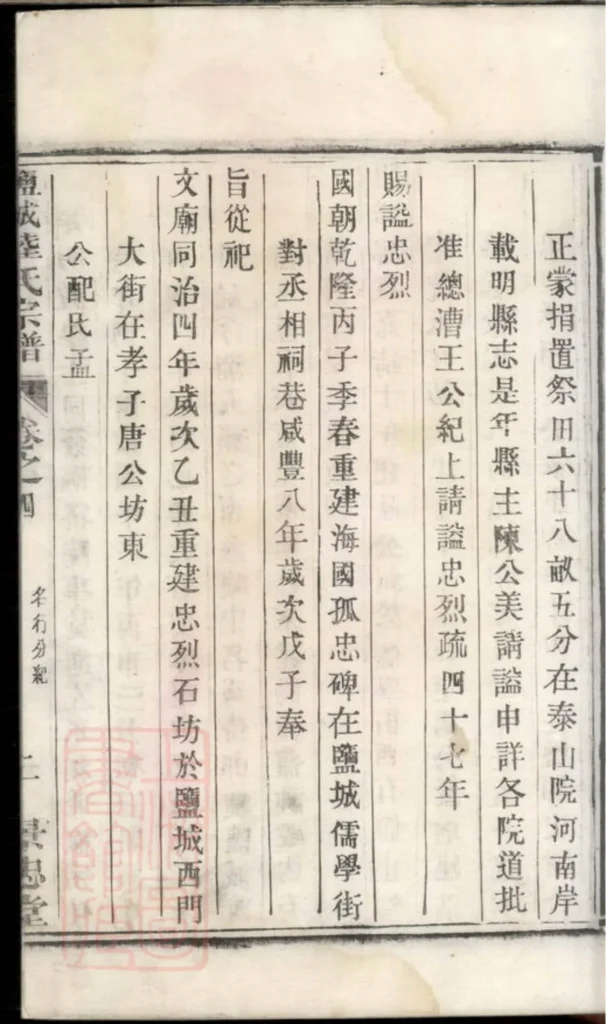 正蒙捐置祭田六十八畝五分在泰山院河南岸
載明縣志是年縣主陳公美請謚申詳各院道批
准總漕王公紀上請謚忠烈疏四十七年
賜謚忠烈
國朝乾隆丙子季春重建海國孤忠碑在鹽城儒學街
對丞相祠巷咸豐八年歲次戊子奉
旨從祀
文廟同治四年歲次乙丑重建忠烈石坊於鹽城西門
大街在孝子唐公坊東
公配氏孟
鹽城陸氏宗譜
卷之四
名行分紀
二
景忠堂